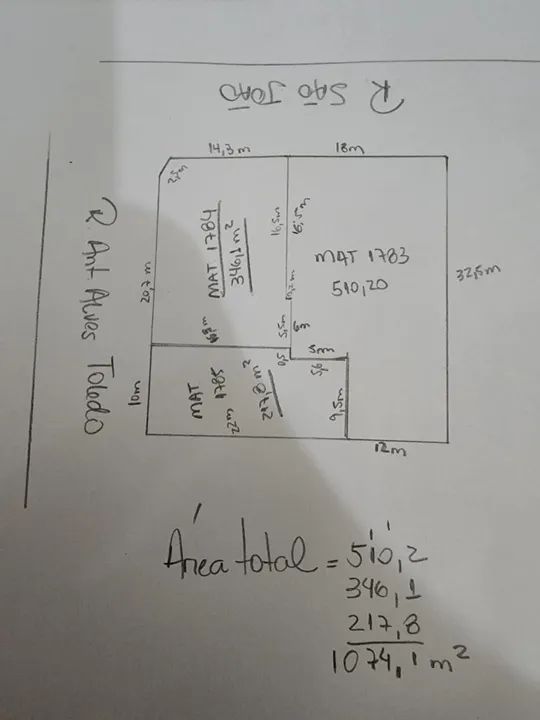 R SÃO JOÃO
14,3m
18m
2,5m
R. Ant Alves Toledo
20,7 m
MAT 1784
346,1 m²
16,5m
5,5m
MAT 1783
510,20
32,5m
5m
0,5
5,6
10m
MAT
1785
22m
217,8 m²
9,5m
12m
Área total = 510,2
346,1
217,8
1074,1 m²